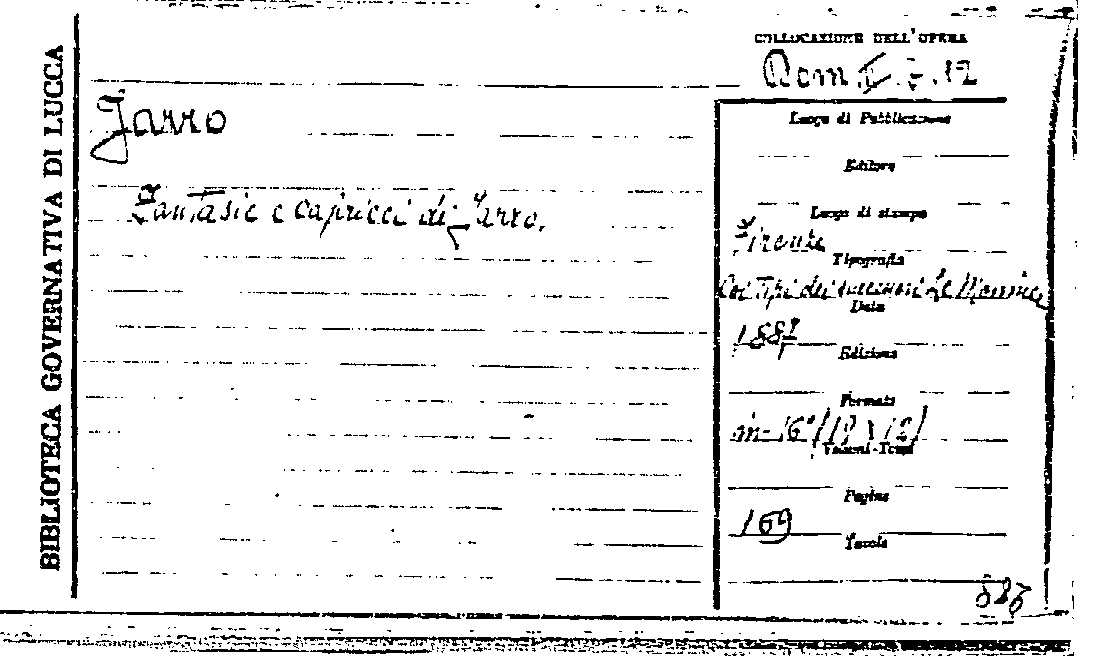 BIBLIOTECA GOVERNATIVA DI LUCCA
COLLOCAZIONE DELL'OPERA
Rom. 12
Jarro
Fantasie e capricci di Jarro.
Luogo di Pubblicazione
Editore
Luogo di stampa
Firenze
Tipografia
Coi Tipi dei successori Le Monnier
Data
188
Edizione
Formato
in-16° (19 x 12)
Volumi-Tomi
Pagine
169
Tavole